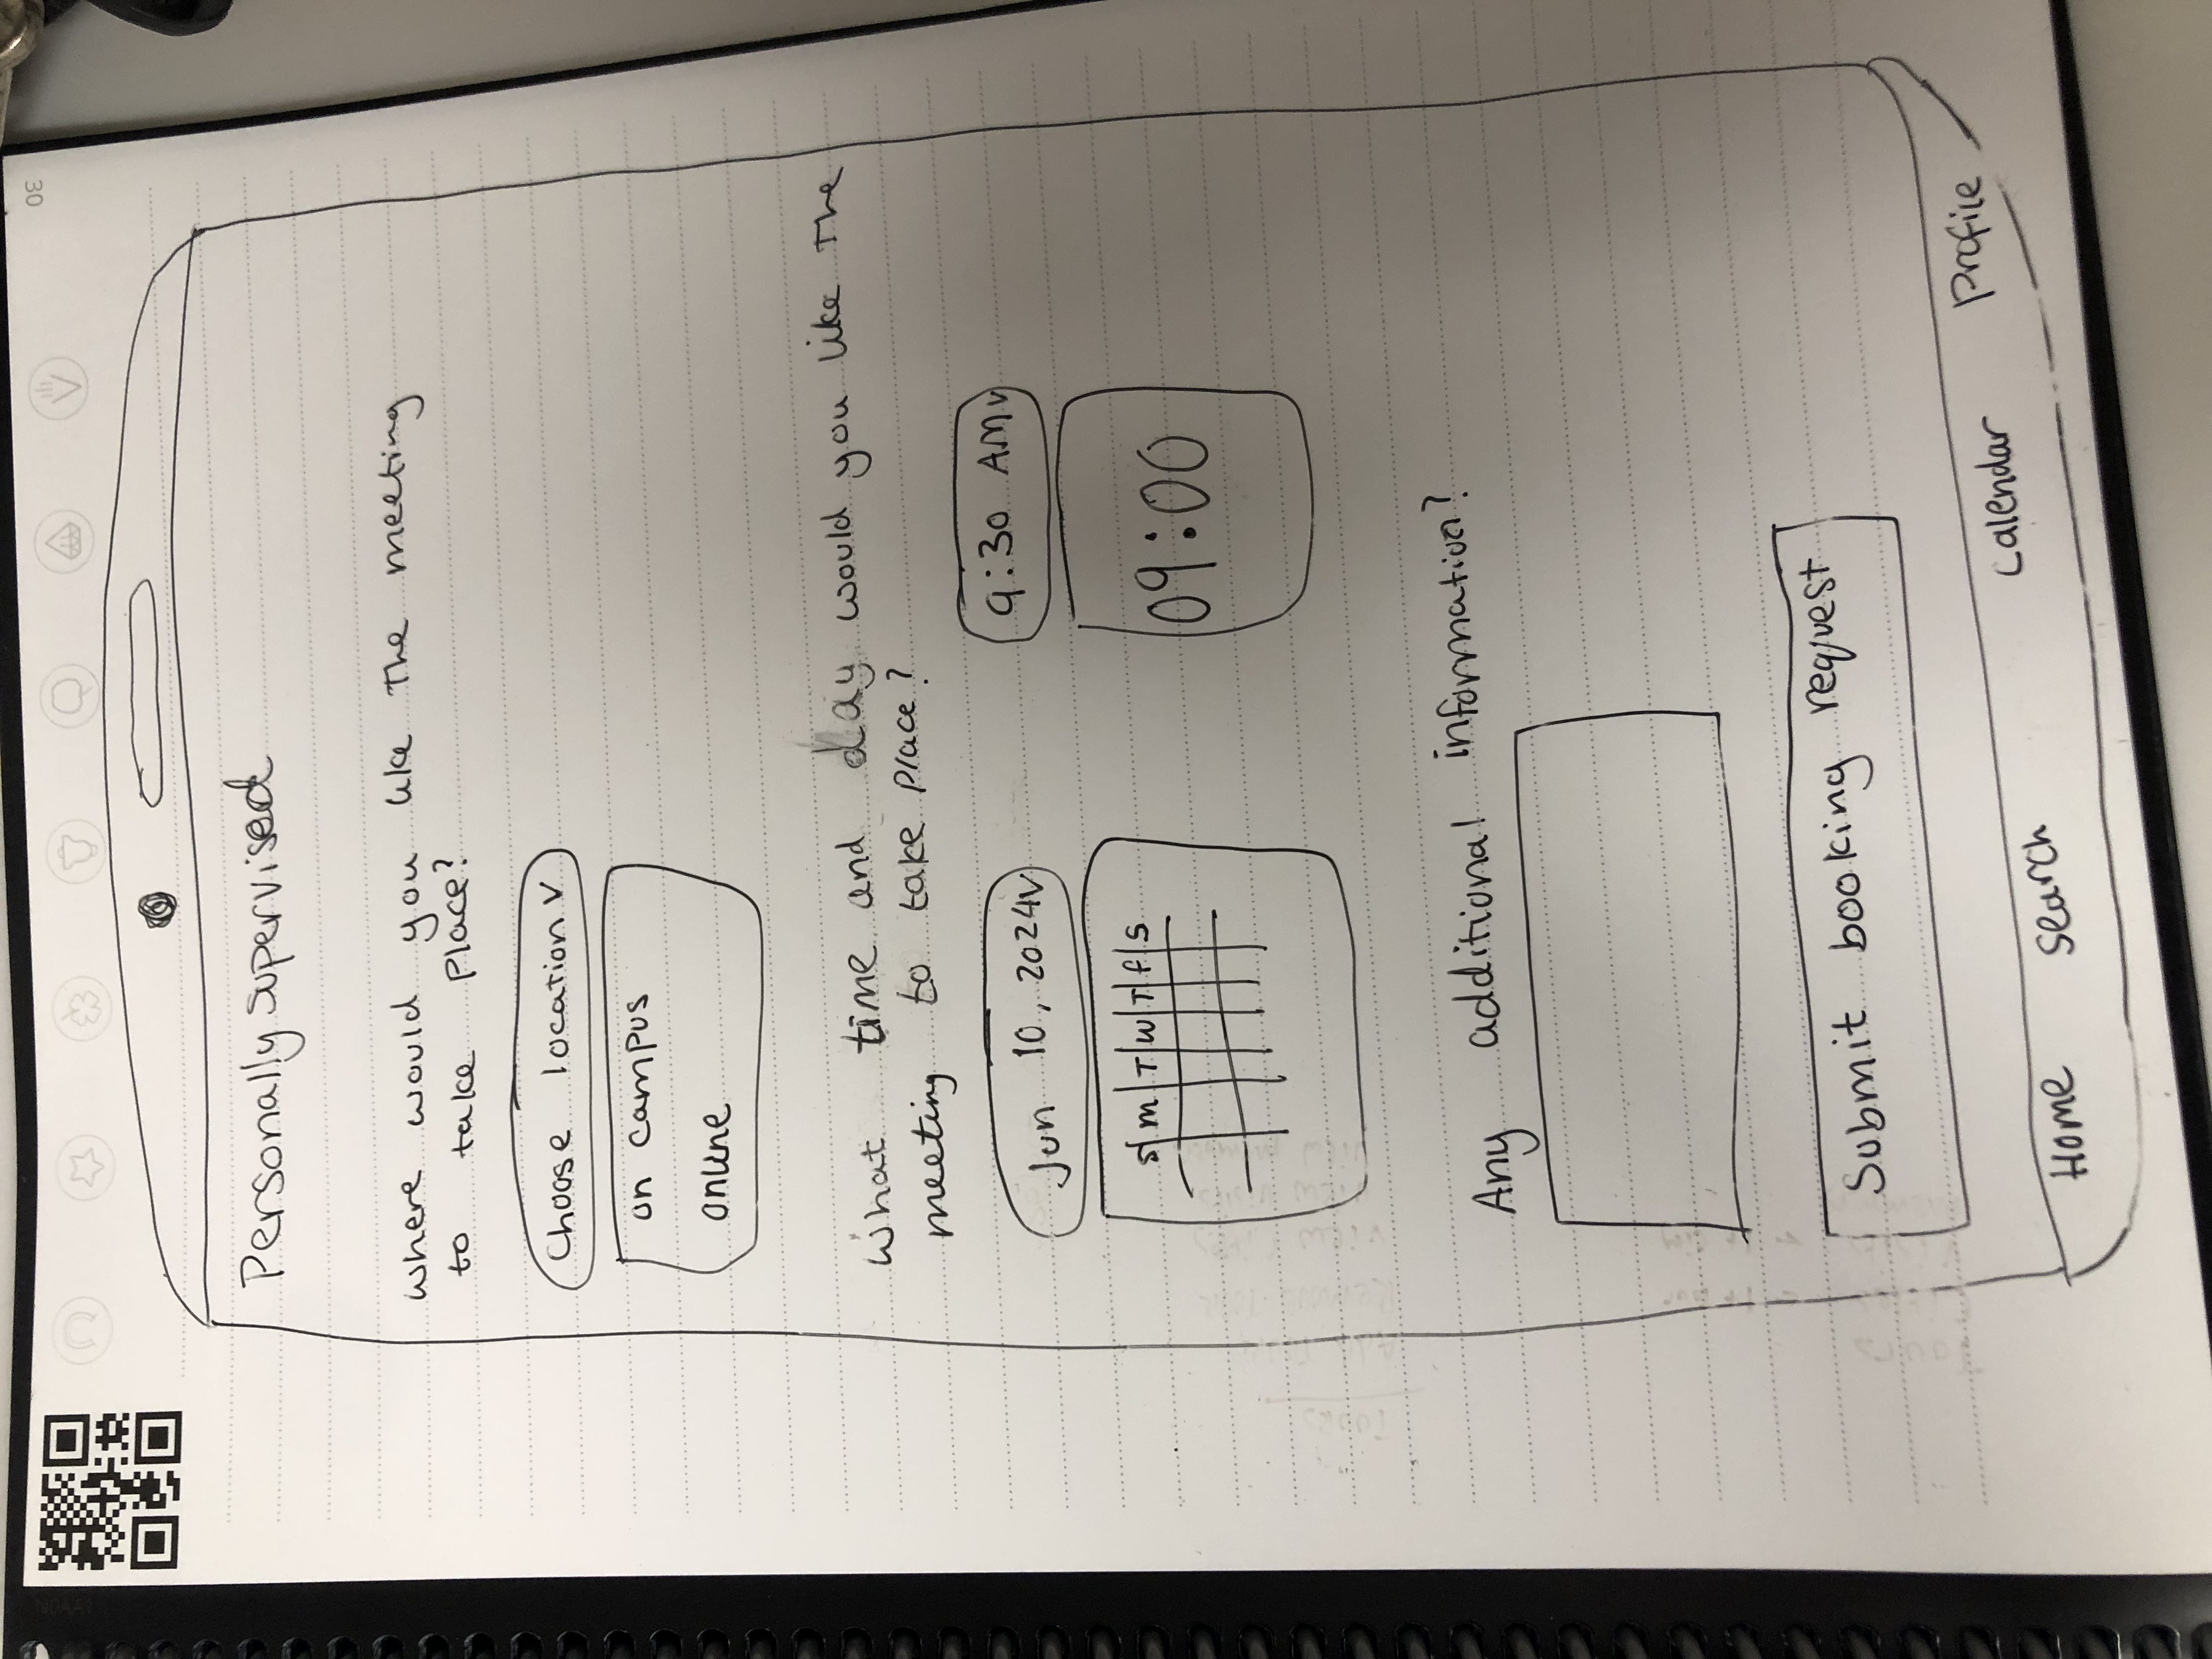 30
Personally supervised
where would you like the meeting
to take place?
Choose location v
on campus
online
What time and day would you like the
meeting to take place?
Jun 10, 2024 v
9:30 AM v
S M T W T F S
09:00
Any additional information?
Submit booking request
Home Search Calendar Profile